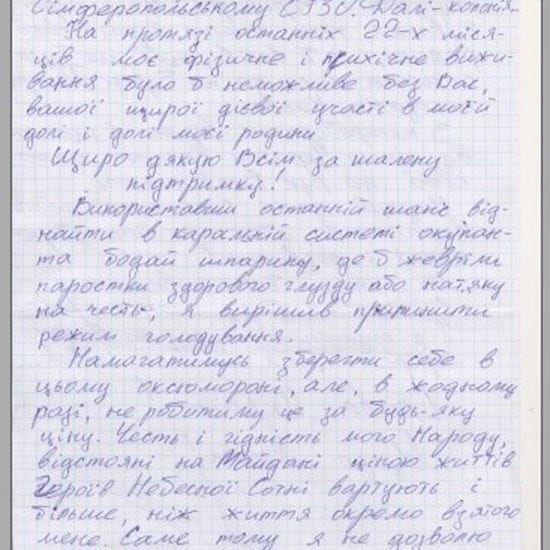 Сімферопольському СІЗО. Далі - копія.
На протязі останніх 22-х міся-
ців моє фізичне і психічне вижи-
вання було б неможливе без Вас,
вашої щирої дієвої участі в моїй
долі і долі моєї родини.
Щиро дякую Всім, за шалену
підтримку!
Використавши останній шанс від-
найти в каральній системі окупан-
та бодай шпарину, де б жевріли
паростки здорового глузду або натяку
на честь, я вирішив припинити
режим голодування.
Намагатимусь зберегти себе в
цьому оксюмороні, але, в жодному
разі, не робитиму це за будь-яку
ціну. Честь і гідність мого Народу,
відстояні на Майдані ціною життів
Героїв Небесної Сотні вартують і
більше, ніж життя окремо взятого
мене. Саме тому я не дозволю